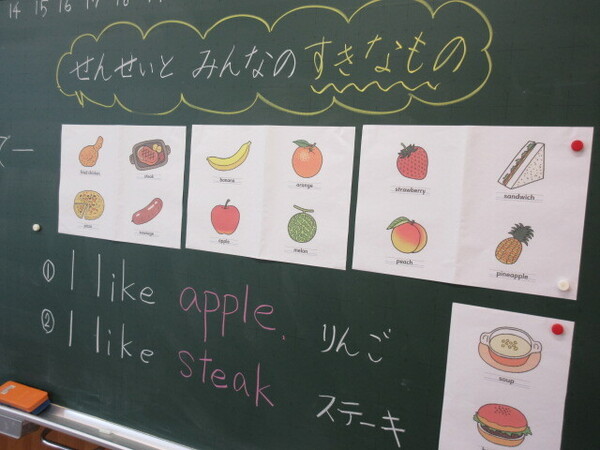 14 15 16 17 18
せんせいと みんなの すきなもの
fried chicken
steak
banana
orange
strawberry
sandwich
pizza
sausage
apple
melon
peach
pineapple
① I like apple. りんご
② I like steak ステーキ
soup